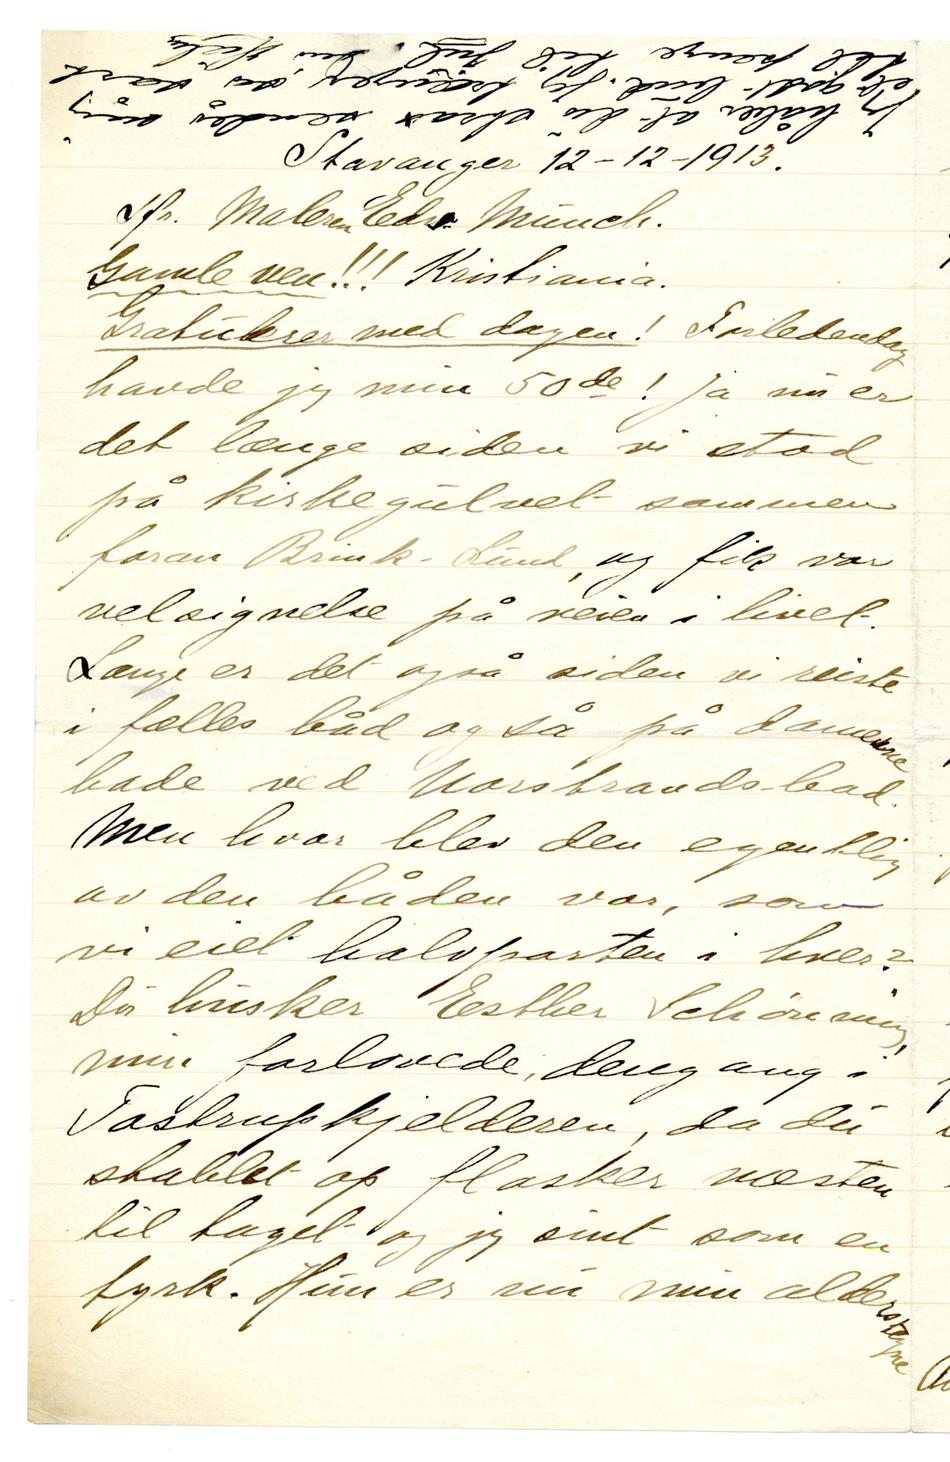 Jeg håber at du strax sender mig
et godt bud. Jeg trænger så sårt
til penge til Jul. Din
Stavanger 12-12-1913.
Hr. Maleren Edv. Münch.
Gamle ven!!! Kristiania.
Gratulerer med dagen! Forledendag
havde jeg min 50de! Ja nu er
det længe siden vi stod
på kirkegulvet sammen
foran Brink-Lund, og fik vor
velsignelse på veien i livet.
Længe er det også siden vi reiste
i fælles båd og så på damerne
bade ved Norstrands-bad.
Men hvor blev den egentlig
av den båden vor, som
vi eiet halvparten i hver?
Du husker Esther Schønning,
min forlovede, dengang i
Tostrupkjelderen, da du
stablet op flasker næsten
til taget og jeg sint som en
tyrk. Hun er nu min alderstegne